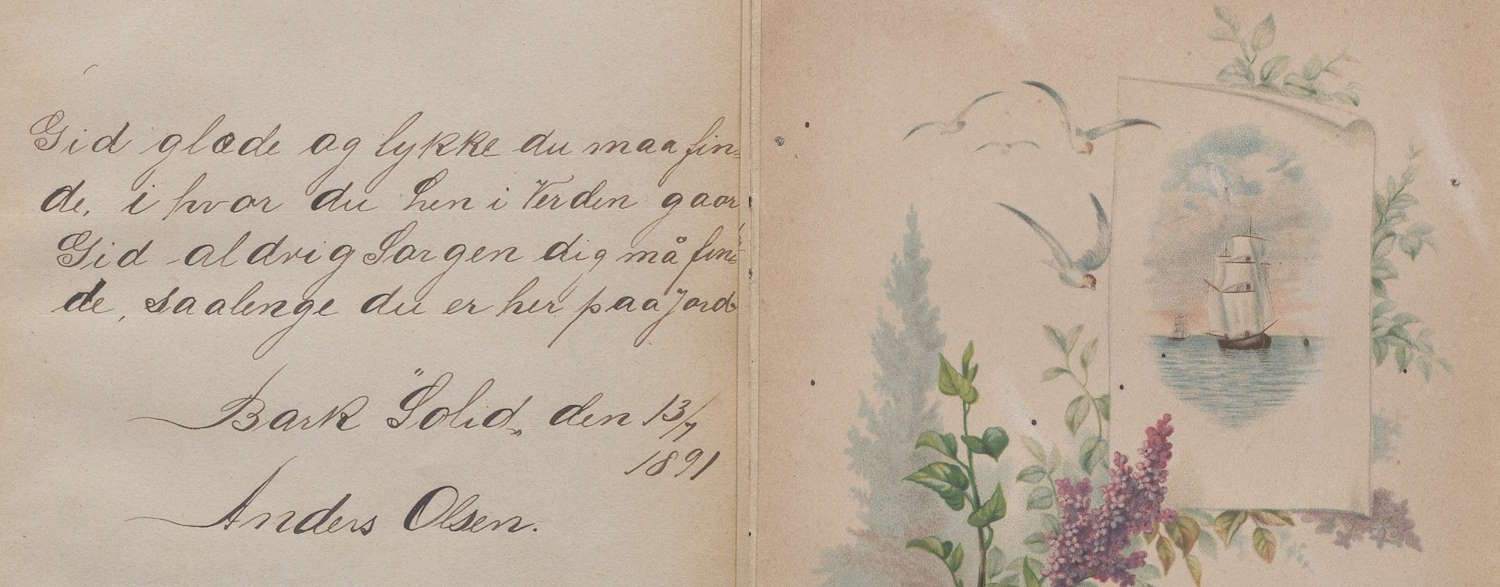 Gid glæde og lykke du maa fin-
de, i hvor du hen i Verden gaar,
Gid aldrig Sorgen dig må fin-
de, saalenge du er her paa Jord
Bark "Solid„ den 13/7
1891
Anders Olsen.